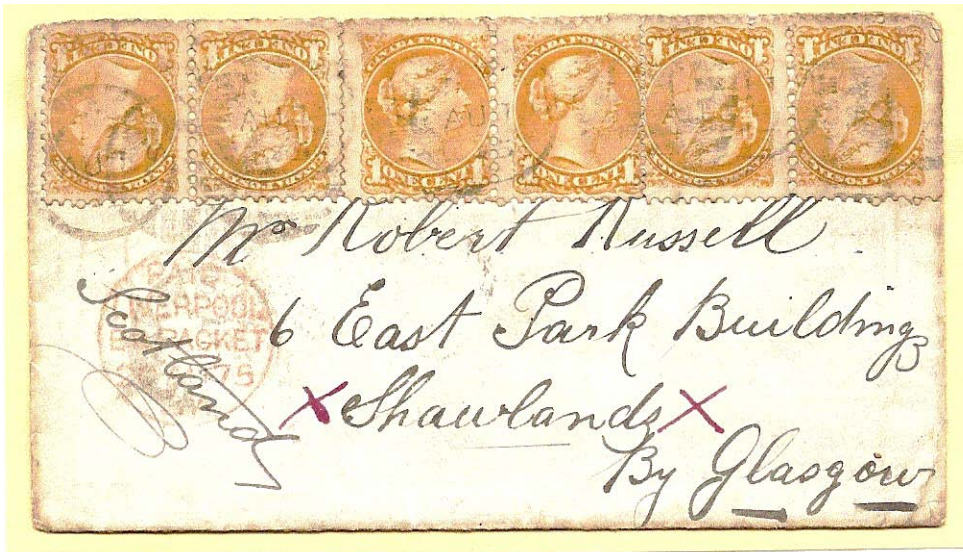 ONE CENT
ONE CENT
CANADA POSTAGE
1 ONE CENT 1
CANADA POSTAGE
1 ONE CENT 1
ONE CENT
ONE CENT
Mr Robert Russell
6 East Park Buildings
Shawlands
By Glasgow
Scotland
PAID
LIVERPOOL
PACKET
75